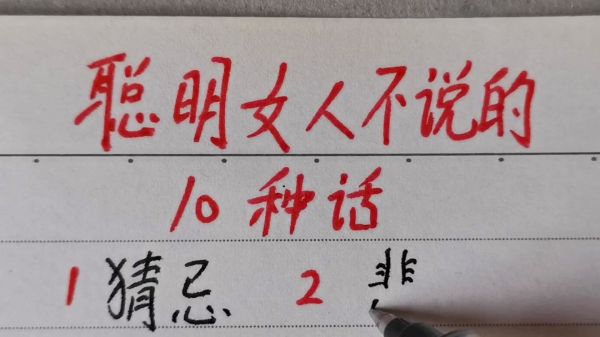 聪明女人不说的
10种话
1 猜忌 2